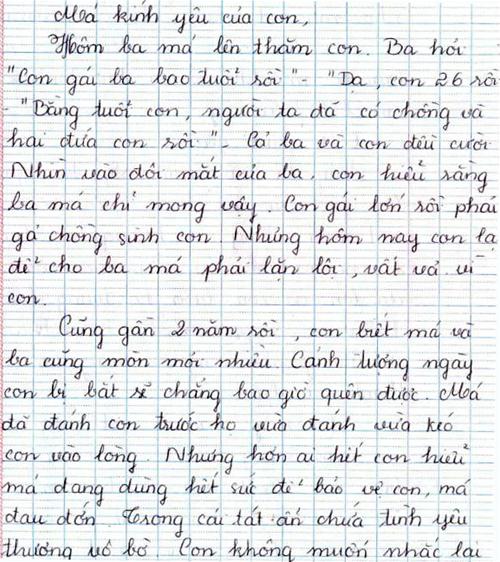 Má kính yêu của con,
Hôm ba má lên thăm con. Ba hỏi
"Con gái ba bao tuổi rồi" - "Dạ, con 26 rồi
- "Bằng tuổi con, người ta đã có chồng và
hai đứa con rồi" - Cả ba và con đều cười
Nhìn vào đôi mắt của ba, con hiểu rằng
ba má chỉ mong vậy. Con gái lớn rồi phải
gả chồng sinh con. Nhưng hôm nay con lại
để cho ba má phải lặn lội, vất vả vì
con.
Cũng gần 2 năm rồi, con biết má và
ba cũng mòn mỏi nhiều. Cảnh tượng ngày
con bị bắt sẽ chẳng bao giờ quên được. Má
đã đánh con trước họ vừa đánh vừa kéo
con vào lòng. Nhưng hơn ai hết con hiểu
má đang dùng hết sức để bảo vệ con, má
đau đớn. Trong cái tát ẩn chứa tình yêu
thương vô bờ. Con không muốn nhắc lại